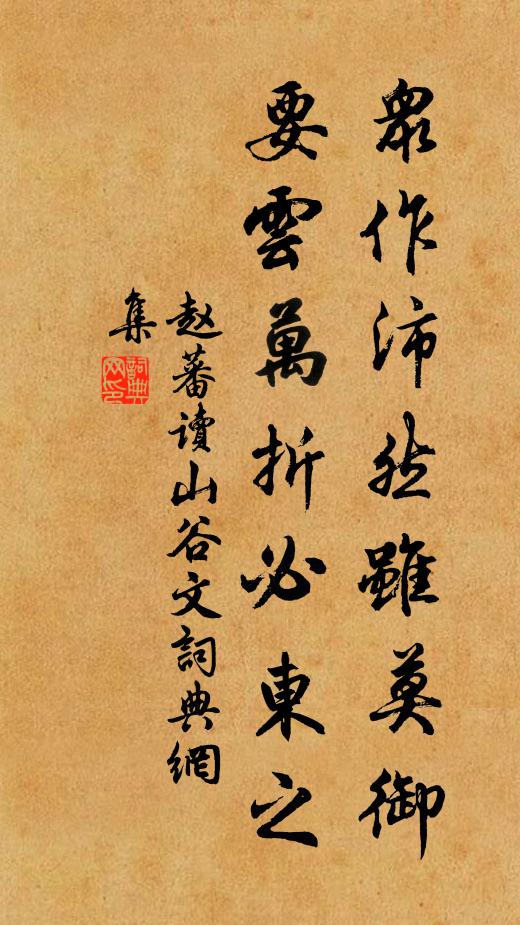 衆作沛然雖莫御
要雲萬折必東之
赵蕃讀山谷文詞典網
集
詞典
网印